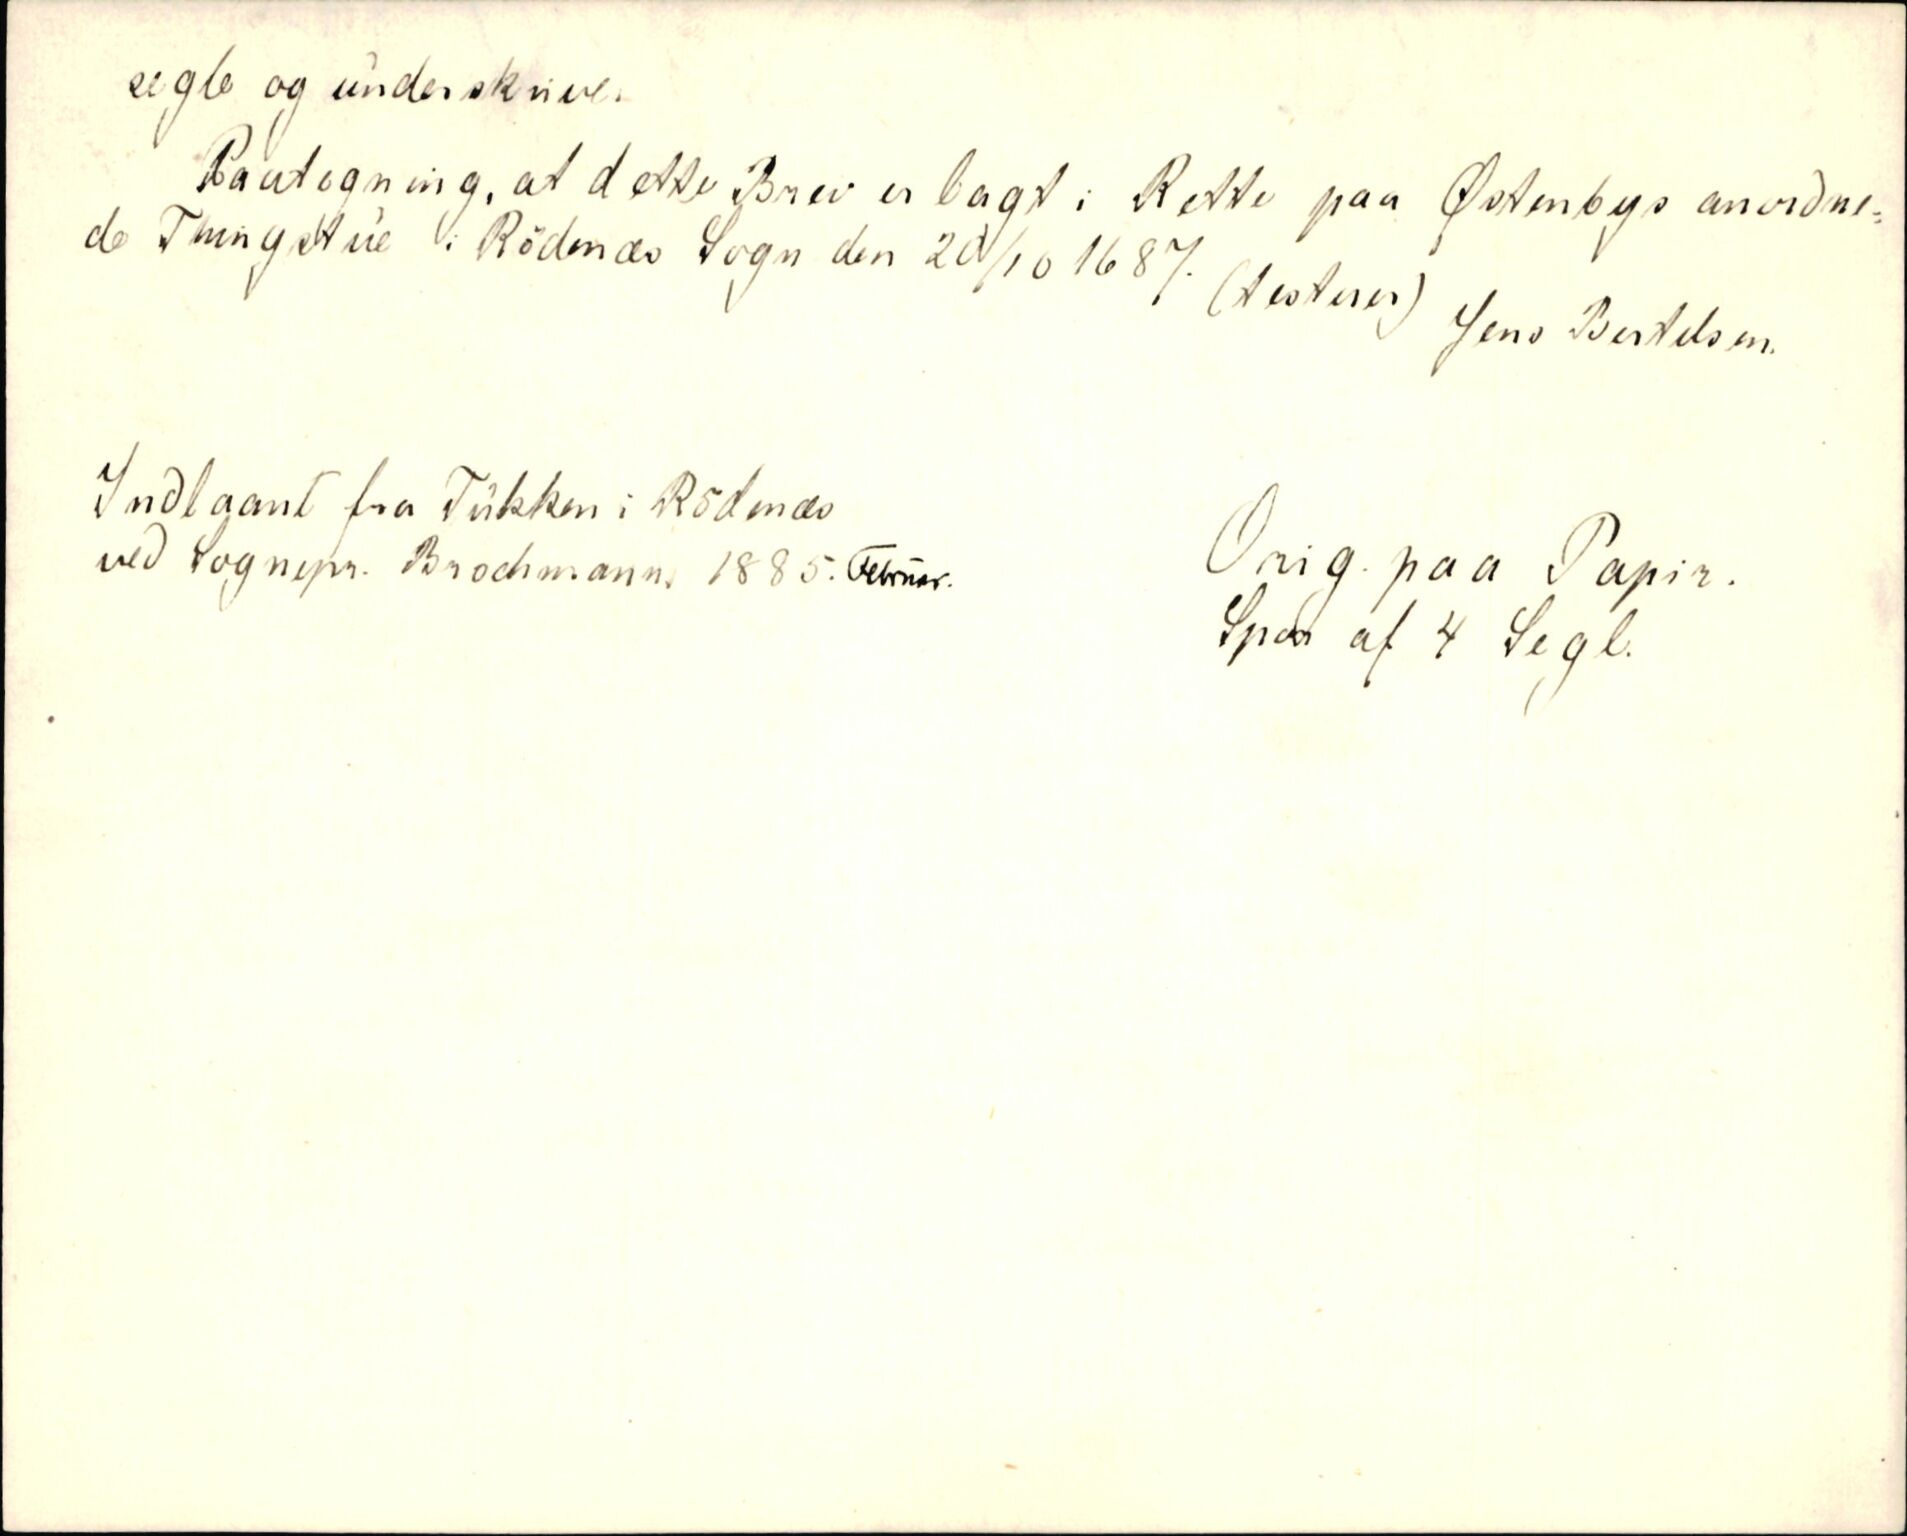 segle og underskrive.
Paategning, at dette Brev er lagt i Rette paa Østenbys anordne-
de Thingstue i Rödenæs Sogn den 20/10 1687. (testerer) Jens Bertelsen.
Indlaant fra Tukken i Rödenæs
ved Sognepr. Brochmann, 1885. Februar.
Orig. paa Papir.
Spor af 4 Segl.